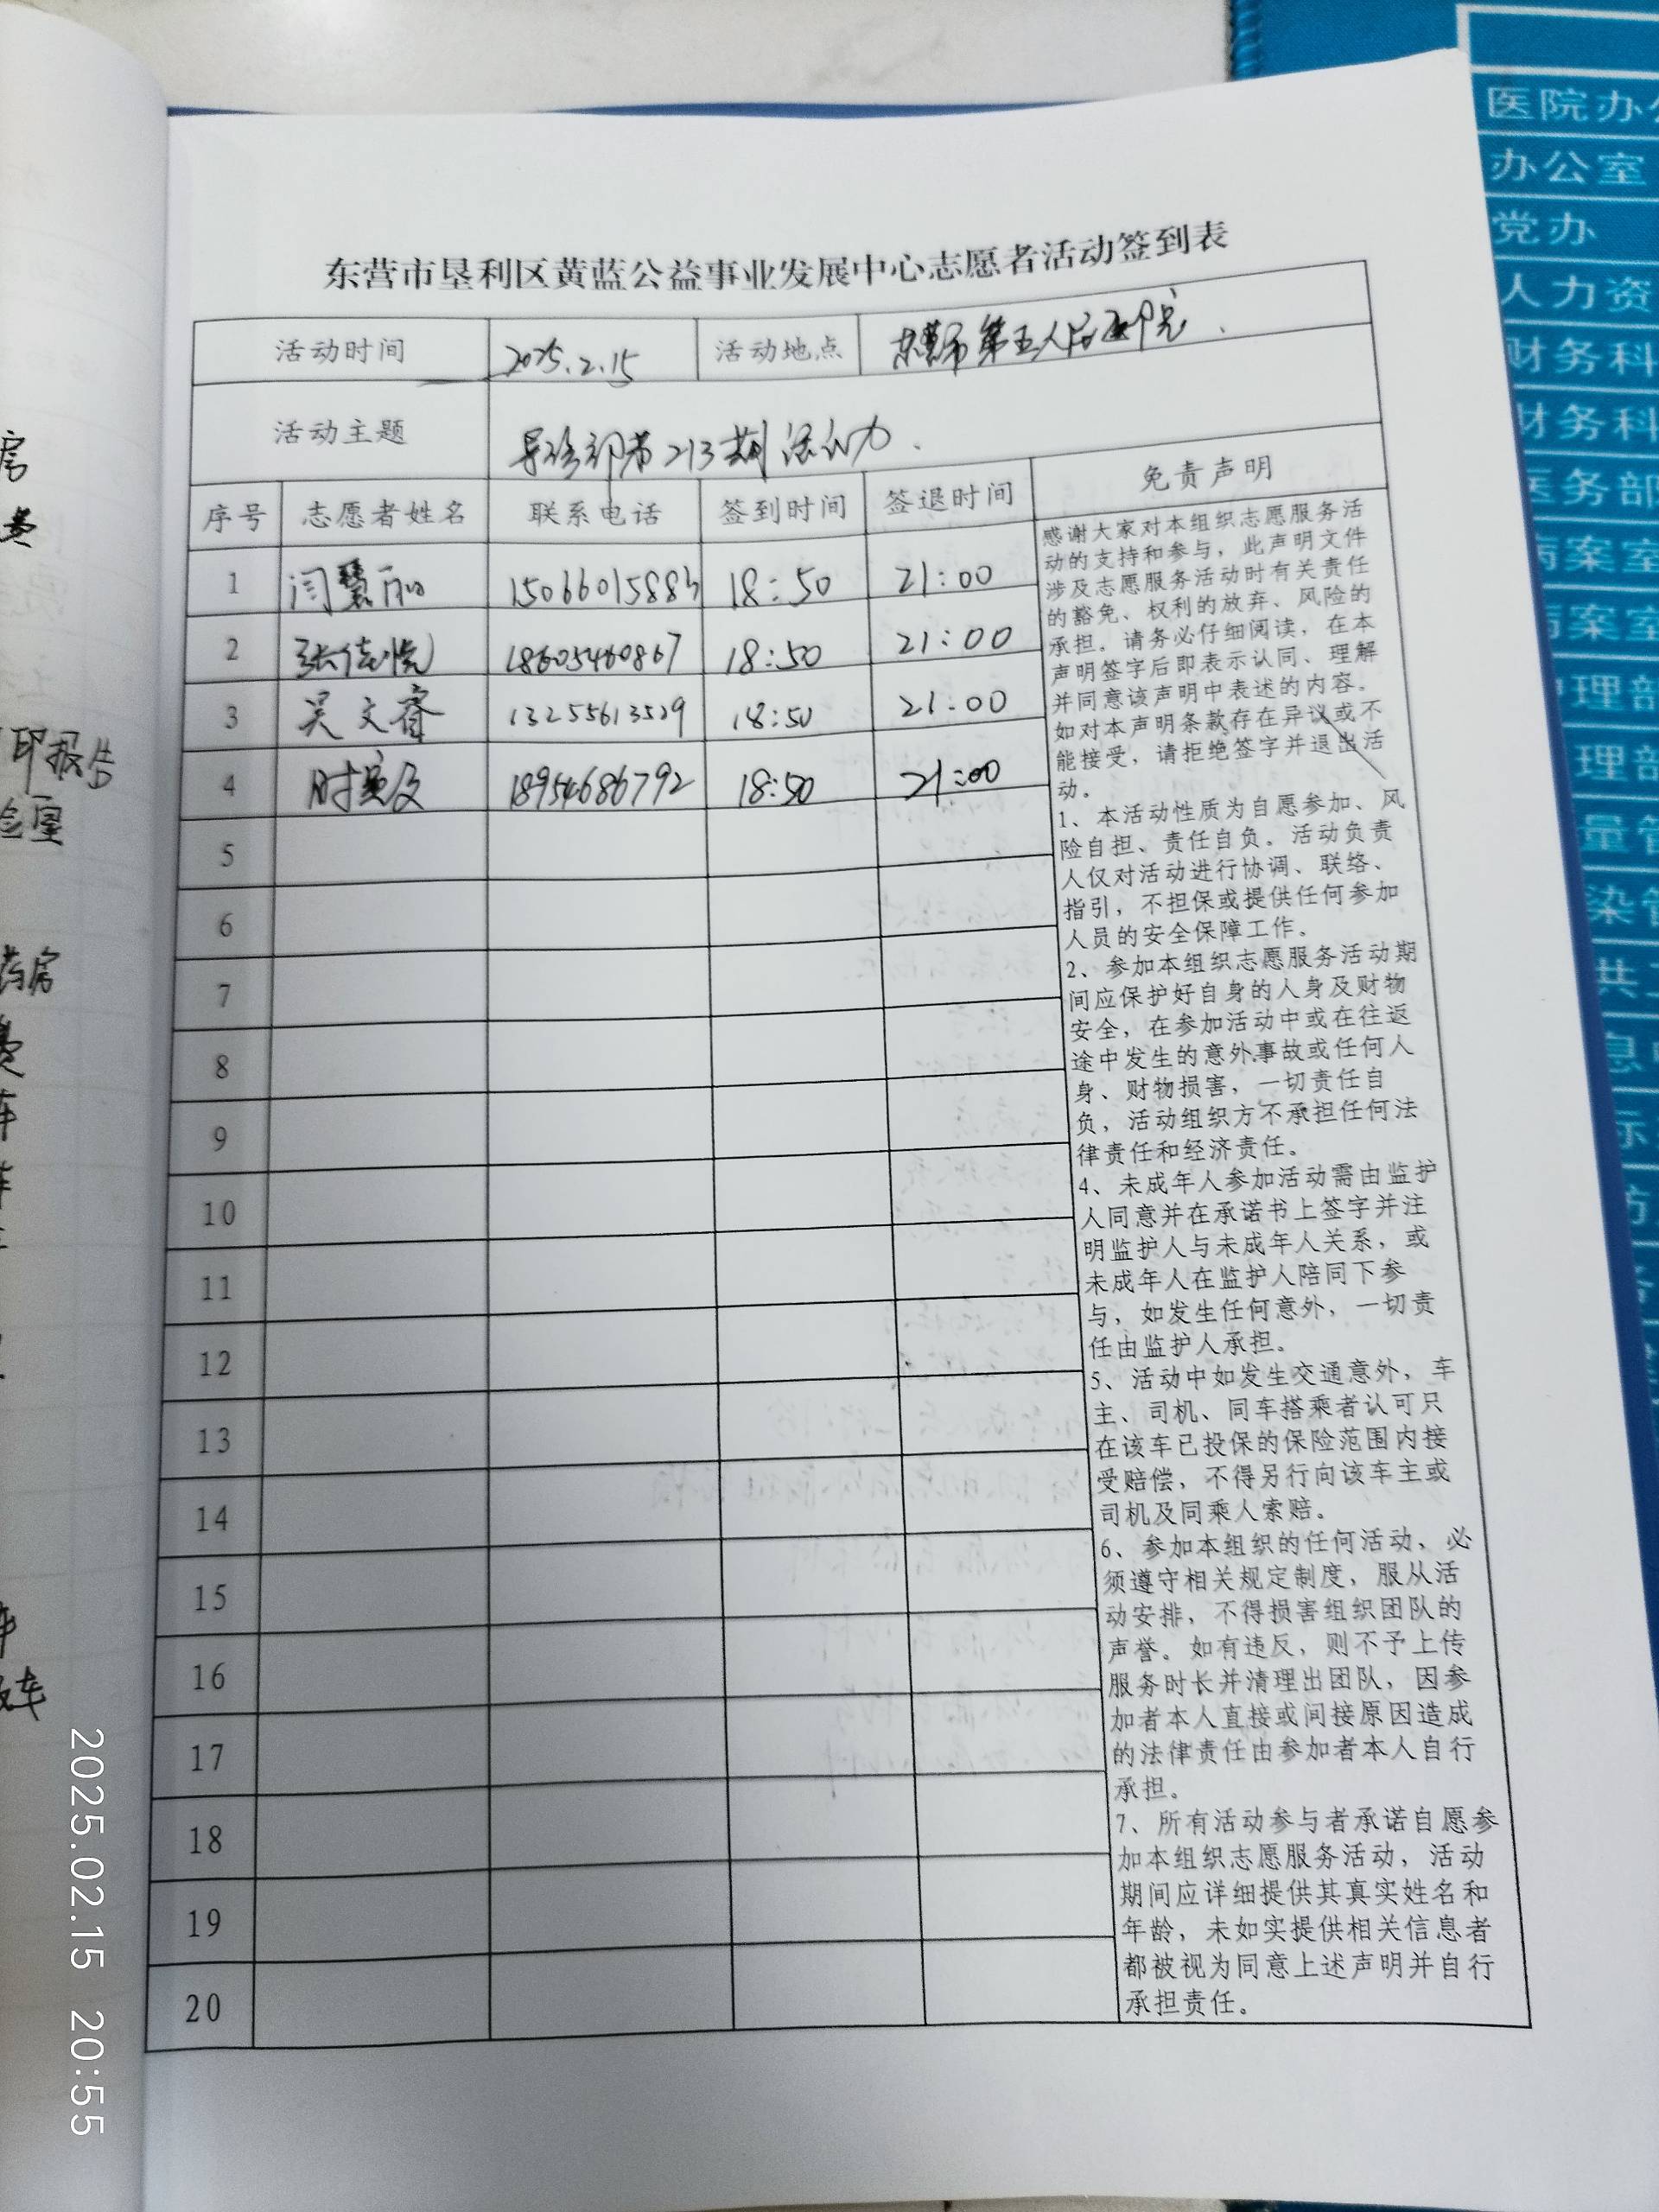 东营市垦利区黄蓝公益事业发展中心志愿者活动签到表
活动时间 2025.2.15 活动地点 东营市第五人民医院
活动主题 导诊部第213期活动
序号 志愿者姓名 联系电话 签到时间 签退时间 免责声明
1 闫慧 1506601588 18:50 21:00
2 张佳悦 18605460867 18:50 21:00
3 吴文睿 13255613529 18:50 21:00
4 时 18954686792 18:50 21:00
5
6
7
8
9
10
11
12
13
14
15
16
17
18
19
20
感谢大家对本组织志愿服务活
动的支持和参与，此声明文件
涉及志愿服务活动时有关责任
的豁免、权利的放弃、风险的
承担。请务必仔细阅读，在本
声明签字后即表示认同、理解
并同意该声明中表述的内容。
如对本声明条款存在异议或不
能接受，请拒绝签字并退出活
动。
1、本活动性质为自愿参加、风
险自担、责任自负。活动负责
人仅对活动进行协调、联络、
指引，不担保或提供任何参加
人员的安全保障工作。
2、参加本组织志愿服务活动期
间应保护好自身的人身及财物
安全，在参加活动中或在往返
途中发生的意外事故或任何人
身、财物损害，一切责任自
负，活动组织方不承担任何法
律责任和经济责任。
4、未成年人参加活动需由监护
人同意并在承诺书上签字并注
明监护人与未成年人关系，或
未成年人在监护人陪同下参
与，如发生任何意外，一切责
任由监护人承担。
5、活动中如发生交通意外，车
主、司机、同车搭乘者认可只
在该车已投保的保险范围内接
受赔偿，不得另行向该车主或
司机及同乘人索赔。
6、参加本组织的任何活动，必
须遵守相关规定制度，服从活
动安排，不得损害组织团队的
声誉。如有违反，则不予上传
服务时长并清理出团队，因参
加者本人直接或间接原因造成
的法律责任由参加者本人自行
承担。
7、所有活动参与者承诺自愿参
加本组织志愿服务活动，活动
期间应详细提供其真实姓名和
年龄，未如实提供相关信息者
都被视为同意上述声明并自行
承担责任。
印报告
药房
医院办
办公室
党办
人力资
财务科
财务科
医务部
病案室
病案室
护理部
理部
2025.02.15 20:55